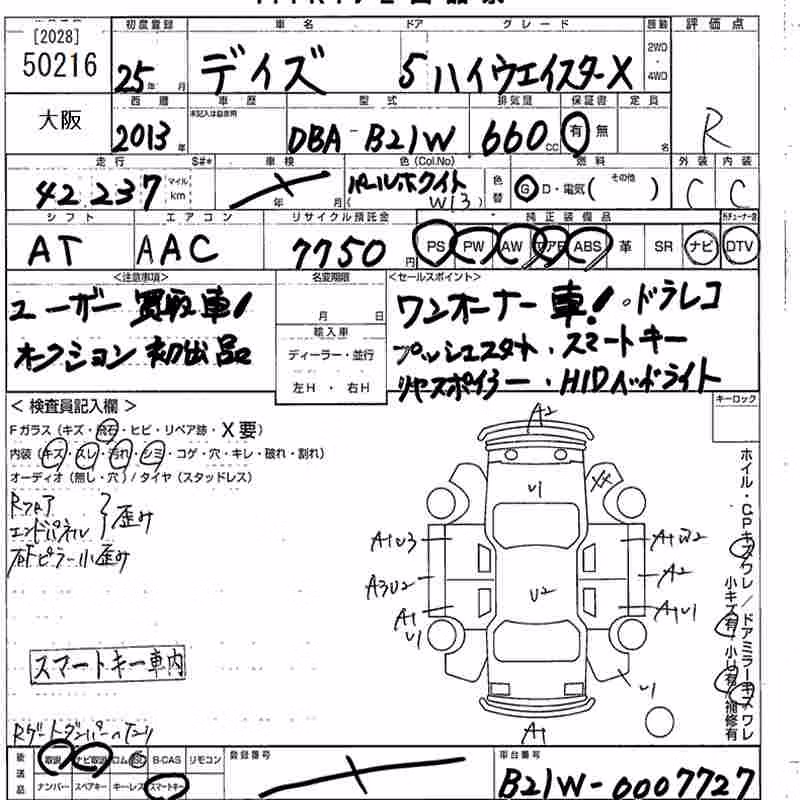 [2028]
50216
初度登録 車名 ドア グレード 駆動 評価点
25年 月 デイズ 5 ハイウェイスターX 2WD・4WD
R
大阪
西暦 車歴 型式 排気量 保証書 定員
未記入は自家用
2013年 DBA-B21W 660cc 有 無 名
走行 S#* 車検 色(Col.No) 燃料 外装 内装
42,237 マイル km 年 月 パールホワイト (W13) 色替 G・D・電気( その他 ) C C
シフト エアコン リサイクル預託金 純正装備品
AT AAC 7750円 PS PW AW エアB ABS 革 SR ナビ DTV
<注意事項> 名変期限 <セールスポイント>
ユーザー買取車!
オークション初出品
月 日
輸入車
ディーラー・並行
左H・右H
ワンオーナー車!。ドラレコ
プッシュスタート・スマートキー
リヤスポイラー・HIDヘッドライト
キーロック
<検査員記入欄>
Fガラス(キズ・飛石・ヒビ・リペア跡・X要)
内装(キズ・スレ・汚れ・シミ・コゲ・穴・キレ・破れ・割れ)
オーディオ(無し・穴)/タイヤ(スタッドレス)
Rフロア
エンドパネル } 歪み
右Fピラー小歪み
A2
U1
XX
A1U3 A1W2
A3U2 U2 A2
A1 A1U1
U1
U1
A1
ホイル・CPキズワレ/ドアミラーキズワレ
小キズ有・小U有・補修有
スマートキー車内
後送品 取説 ナビ取説 B-CAS リモコン 登録番号 車台番号
ナンバー スペアキー キーレス スマートキー B21W-0007727